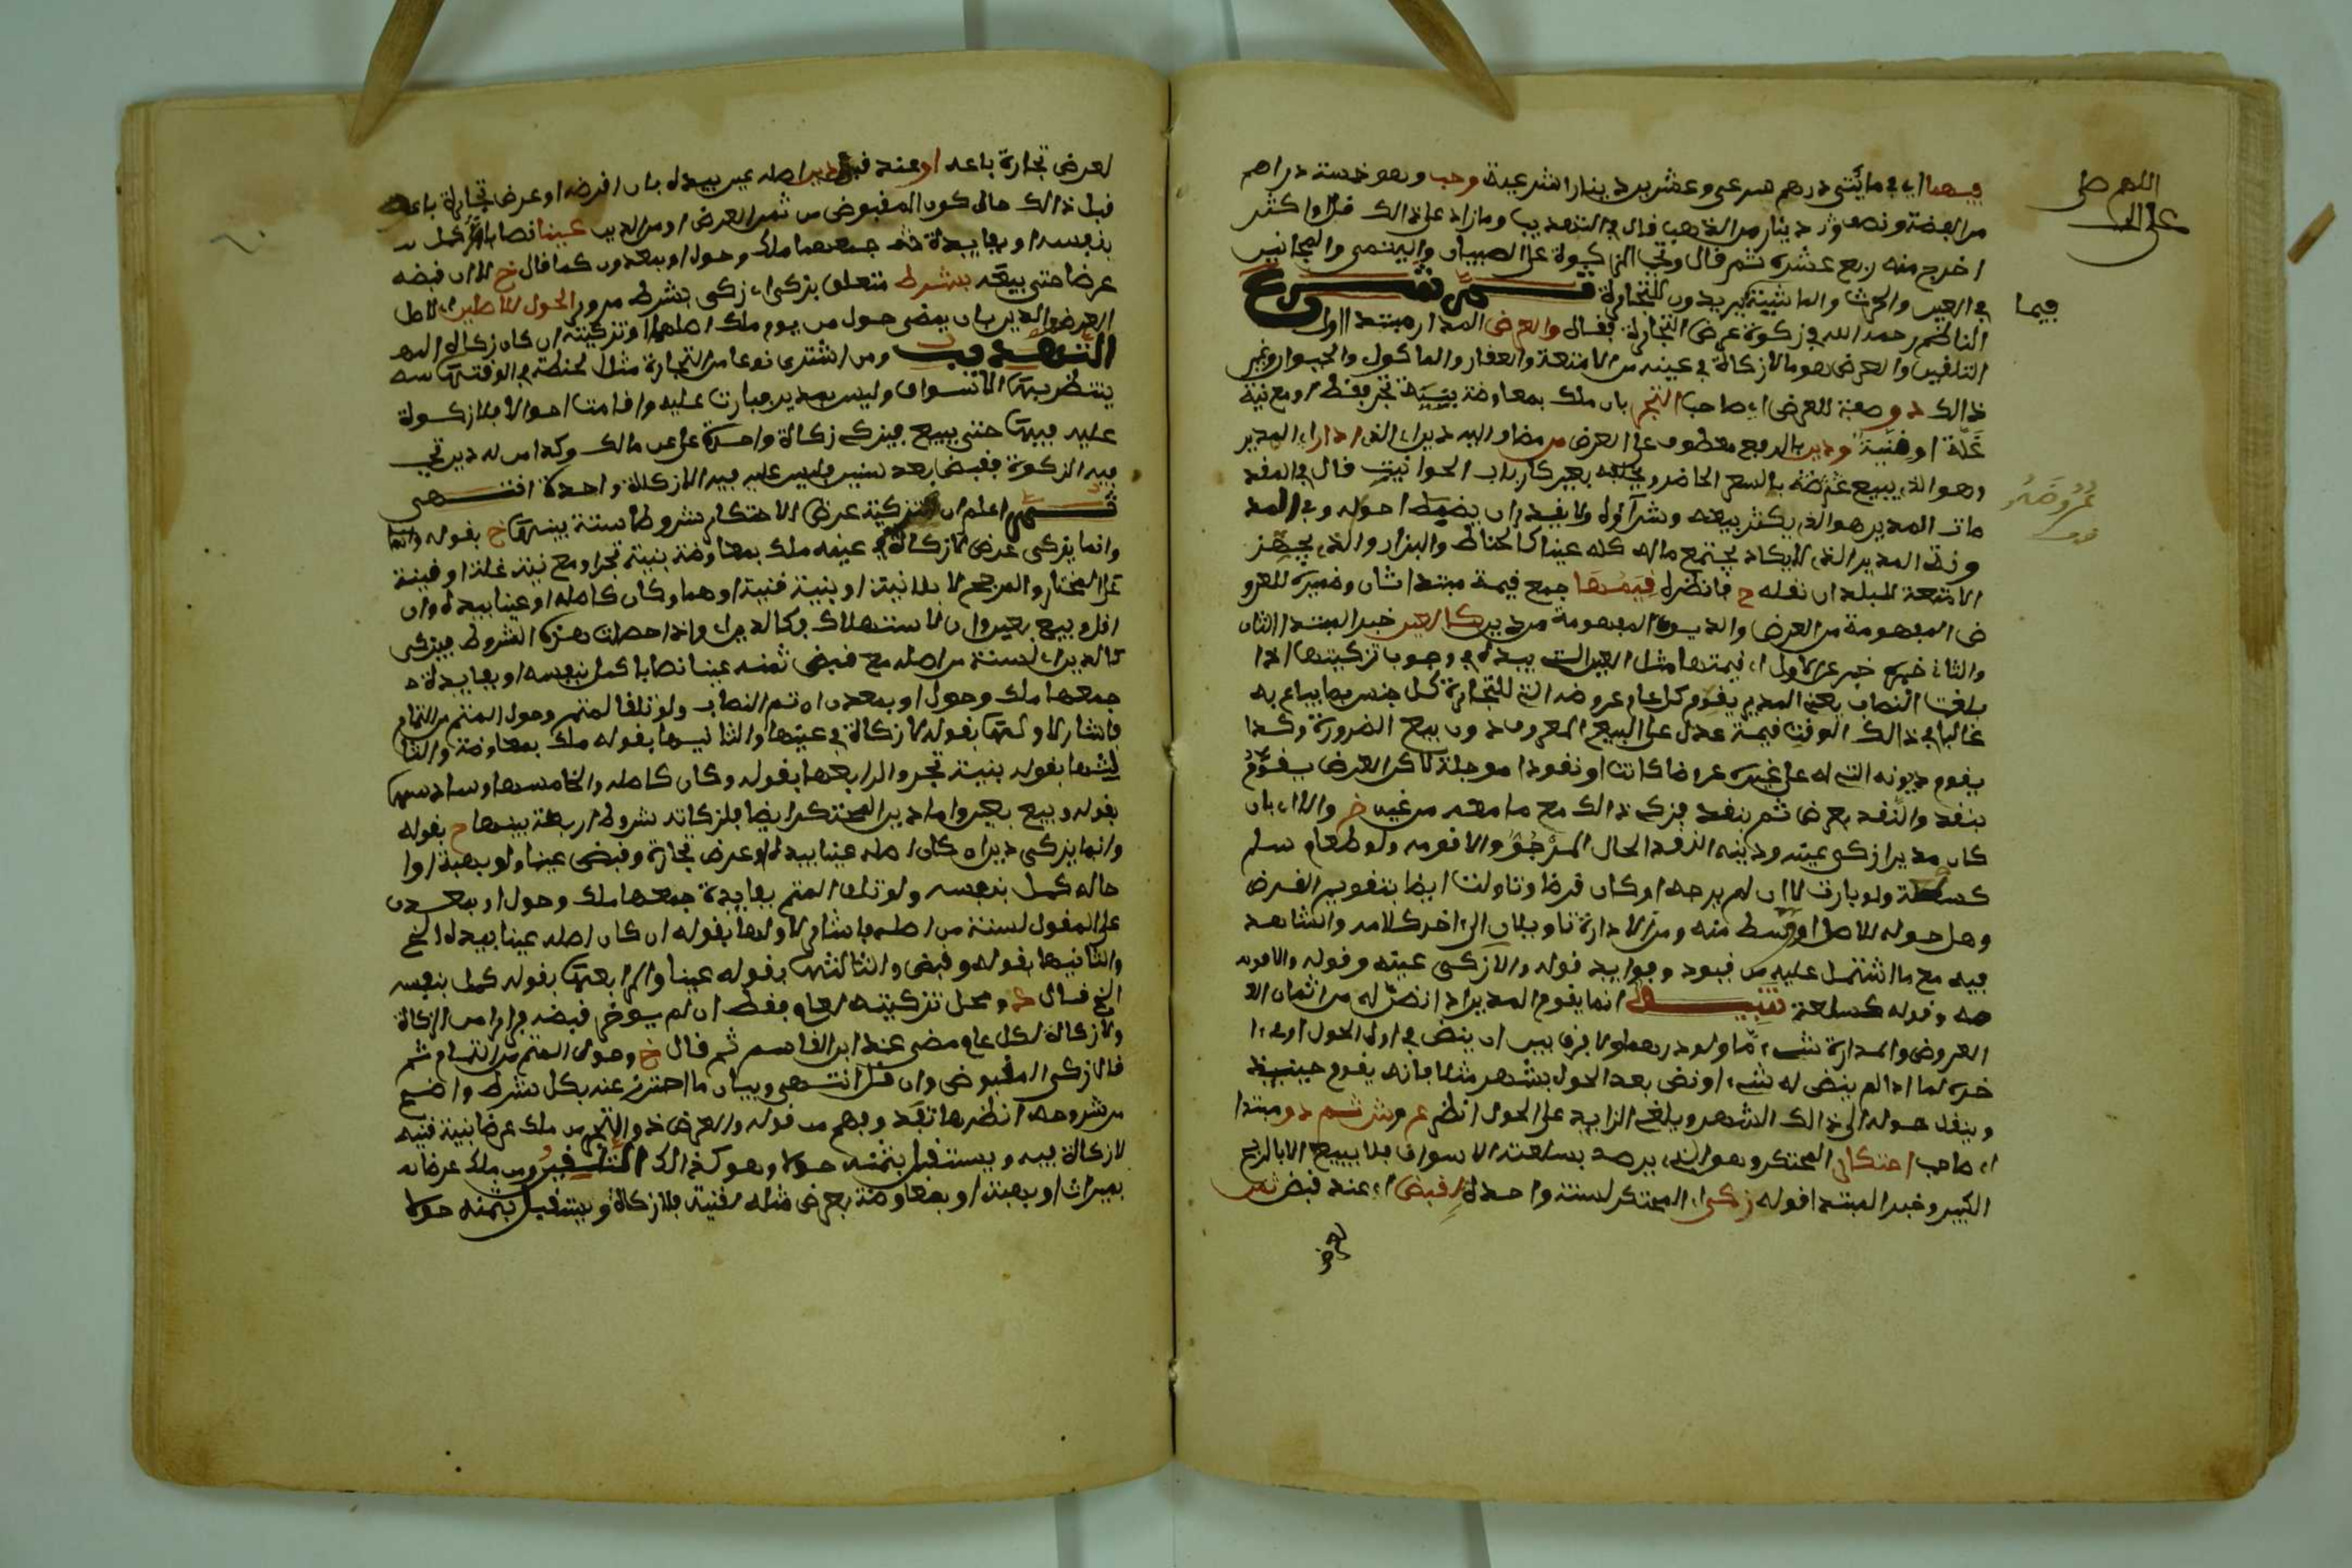 اللهم صل
على
فيهما اي في مائتي درهم شرعي وعشرين دينارا شرعية وجب وهو خمسة دراهم
من الفضة ونصف دينار من الذهب قال في التهذيب وما زاد على ذالك قل او اكثر
اخرج منه ربع عشره ثم قال وتجب الزكوة على الصبيان واليتمى والمجانين
في العين والحرث والماشية يريدون للتجارة
فيما
الناظم رحمه الله في زكوة عرض التجارة فقال والعرض المدار مبتدا اول
التلقين والعرض هو ما لا زكاة في عينه من الامتعة والعقار والماكول والحيوان وغير
ذالك ذو صفة للعرض اي صاحب التجر بان ملك بمعاوضة بنية تجر فقط او مع نية
غلة او قنية ودين بالرفع معطوف على العرض من مضاف اليه دين اي الذي ادار اي المدير
وهو الذي يبيع عرضه بالسعر الحاضر ويخلفه بغيره كارباب الحوانيت قال في المقد
مات المدير هو الذي يكثر بيعه وشراؤه ولا يقدر ان يضبط احواله وفي المد
ونة المدير الذي لا يكاد يجتمع ماله كله عينا كالحناط والبزار والذي يجهز
الامتعة للبلدان نقله ح فانظر قيمتها جمع قيمة مبتدا ثان وضميره للعرو
ض المفهومة من العرض والديون المفهومة من دين كالعين خبر المبتدا الثان
والثاني خبره خبر عن الاول اي قيمتها مثل العين التي بيده في وجوب تزكيتها اذا
بلغت النصاب يعني المدير يقوم كل عام عروضه التي للتجارة كل جنس بما يباع به
غالبا في ذالك الوقت قيمة عدل على البيع المعروف دون بيع الضرورة وكذا
يقوم ديونه التي له على غيره عروضا كانت او نقودا موجلة لاكن العرض يقوم
بنقد والنقد بعرض ثم بنقد فيزكي ذالك مع ما معه من غيره خ والا اي بان
كان مديرا زكى عينه ودينه النقد الحال المرجو والا قومه ولو طعام سلم
كسلعة ولو بارت لا ان لم يرجه او كان قرضا وتاولت ايضا بتقويم القرض
وهل حوله للاصل او وسط منه ومن الادارة تاويلان الى اخر كلامه والشاهد
فيه مع ما اشتمل عليه من قيود وفوايد قوله والا زكى عينه وقوله والا قومه
وقوله كسلعة تنبيه انما يقوم المدير اذا نض له من اثمان العر
العروض والمدارة شيء ما ولو درهما ولا فرق بين ان ينض في اول الحول او في ا
خره اما اذا لم ينض له شيء او نض بعد الحول بشهر مثلا فانه يقوم حينئذ
وينقل حوله الى ذالك الشهر ويلغي الزايد على الحول انظر ثم ذو مبتدا
اي صاحب احتكار المحتكر وهو الذي يرصد بسلعته الاسواق فلا يبيع الا بالربح
الكبير وخبر المبتدا قوله زكى اي المحتكر لسنة واحدة لقبض اي عند قبض ثمن
لعرض تجارة باعه او عند قبض دين اصله عين بيده بان اقرضه او عرض تجارة باعه
قبل ذالك حال كون المقبوض من ثمن العرض او من الدين عينا نصابا كمل
بنفسه او بفايدة جمعهما ملك وحول او بمعدن كما قال خ لا ان قبضه
عرضا حتى يبيعه بشرط متعلق بزكى اي زكى بشرط مرور الحول للاصلين اي لاصل
العرض والدين بان يمضي حول من يوم ملك اصلهما او تزكيته ان كان زكاه
التهذيب ومن اشترى نوعا من التجارة مثل الحنطة في الوقت
ينتظر بها الاسواق وليس بمدير فبارت عليه واقامت احوالا فلا زكوة
عليه فيها حتى يبيع فيزكي زكاة واحدة على مالك وكذا من له دين تجب
فيه الزكوة فقبضه بعد سنين فليس عليه فيه الا زكاة واحدة انتهى
اعلم ان لتزكية عرض الاحتكار شروطا ستة بينها خ بقوله
وانما يزكى عرض لا زكاة في عينه ملك بمعاوضة بنية تجر او مع نية غلة او قنية
على المختار والمرجح لا بلا نية او بنية قنية او هما وكان كاصله او عينا بيده وان
اقل وبيع بعين وان لاستهلاك فكالدين واذا حصلت هذه الشروط فيزكى
كالدين اي لسنة من اصله مع قبض ثمنه عينا نصابا كمل بنفسه او بفايدة
جمعهما ملك وحول او بمعدن ان تم النصاب ولو تلف المتم وحول المتم من التمام
فاشار لاولها بقوله لا زكاة في عينها والثانيها بقوله ملك بمعاوضة والثا
لثها بقوله بنية تجر والرابعها بقوله وكان كاصله والخامسها وسادسها
بقوله وبيع بعين واما دين المحتكر ايضا فلزكاته شروط اربعة بينها خ بقوله
وانما يزكى دين ان كان اصله عينا بيده او عرض تجارة وقبض عينا ولو بهبة او ا
حاله كمل بنفسه ولو تلف المتم بفايدة جمعهما ملك وحول او بمعدن
على المقول لسنة من اصله فاشار لاولها بقوله ان كان اصله عينا بيده الخ
والثانيها بقوله وقبض والثالثها بقوله عينا والرابعها بقوله كمل بنفسه
الخ فقال ومحل تزكيته لعام فقط ان لم يوخر قبضه فرارا من الزكاة
والا زكاه لكل عام مضى عند ابن القاسم ثم قال خ وحول المتم من التمام ثم
قال زكى المقبوض وان قل انتهى وبيان ما احترز عنه بكل شرط واضح
من شروحه انظرها تفد وفهم من قوله والعرض ذو التجر من ملك عرضا بنية قنية
لا زكاة فيه ويستقبل بثمنه حولا وهو كذالك التلقين ومن ملك عرضا
بميراث او بهبة او بمعاوضة بعرض مثله لقنية فلا زكاة ويستقبل بثمنه حولا